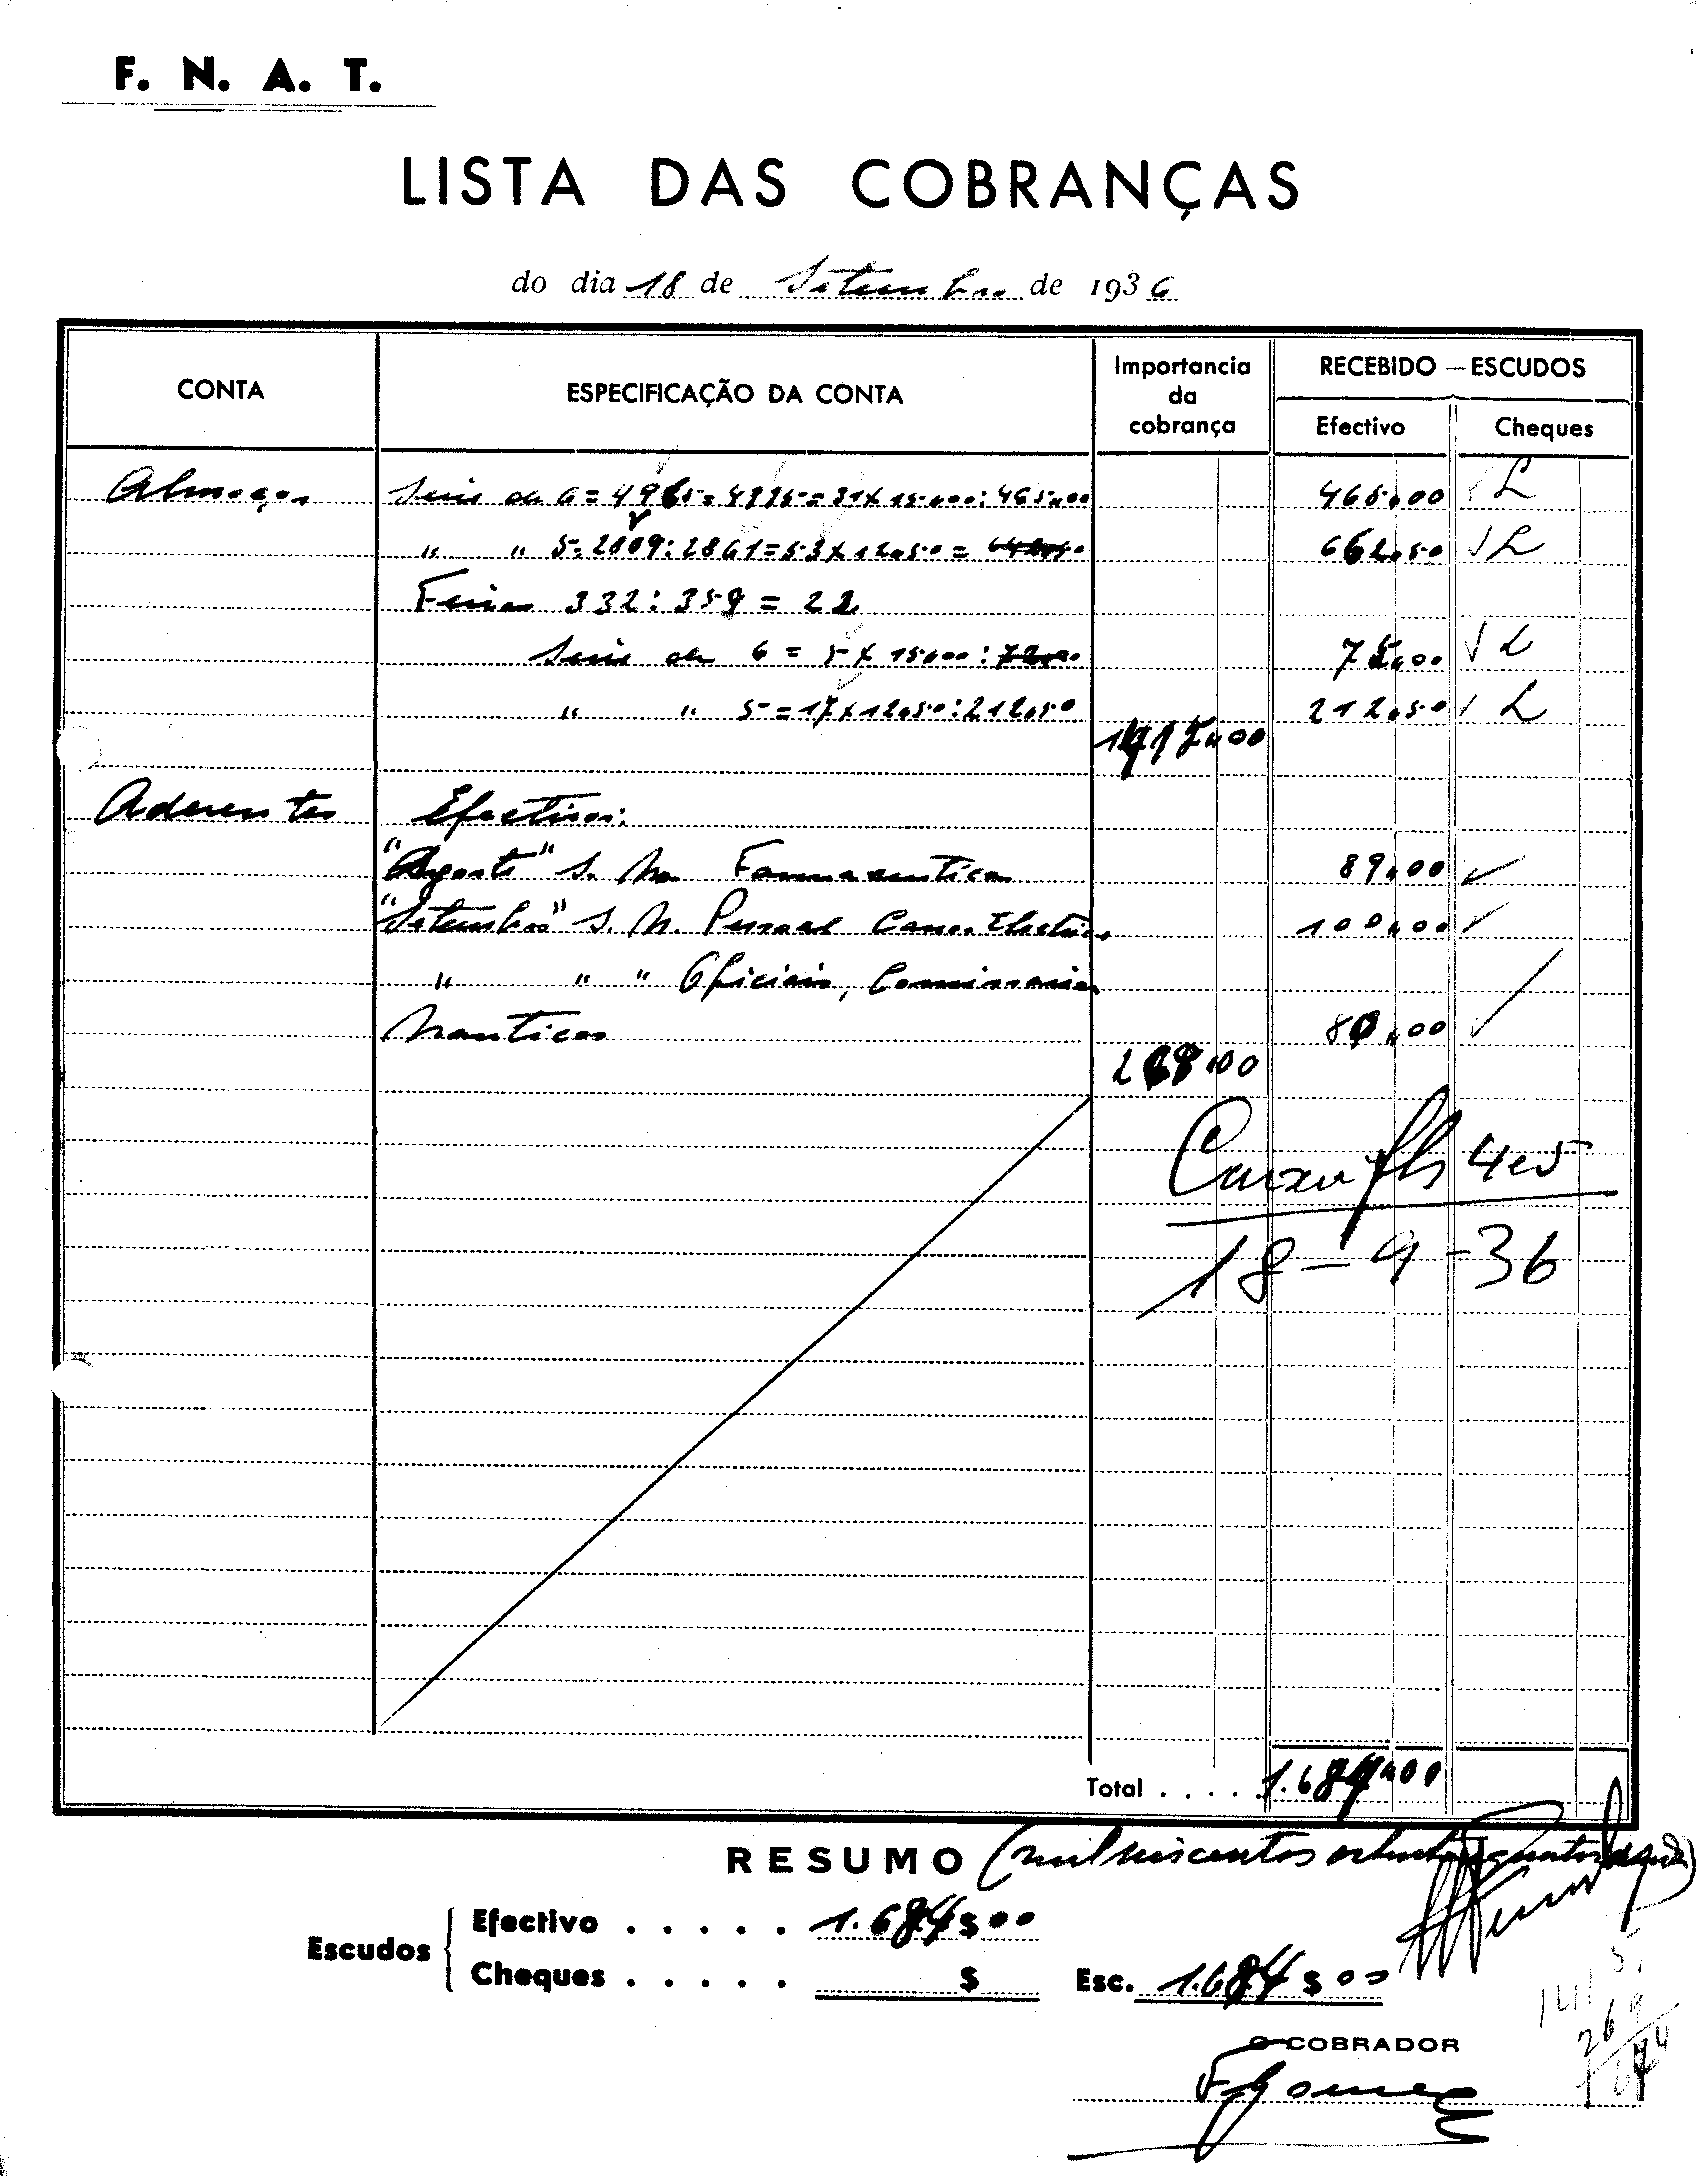 F. N. A. T.
LISTA DAS COBRANÇAS
do dia 18 de Setembro de 1936
CONTA
ESPECIFICAÇÃO DA CONTA
Importancia da cobrança
RECEBIDO — ESCUDOS
Efectivo
Cheques
Almoços Serie de 6 = 31 x 15,000: 465,00 465,00 L
" " 5: 2809: 2861 = 53 x 12,50 = 662,50 L
332: 359 = 22
Serie de 6 = 5 x 15,000: 75,00 L
" " 5 = 17 x 12,50: 212,50 212,50 L
Aderentes Efectivos:
"Agosto" S. N. Farmaceuticos 89,00
"Setembro" S. N. Pessoal Electrico 100,00
" " " Oficiais, Comissarios
Nauticos 80,00
Caixa fls 4 e 5
18-9-36
Total . . . . . 1.684,00
RESUMO (mil seiscentos oitenta quatro
Escudos
Efectivo . . . . . 1.684$00
Cheques . . . . . $
Esc. 1.684$00
O COBRADOR
FGomes